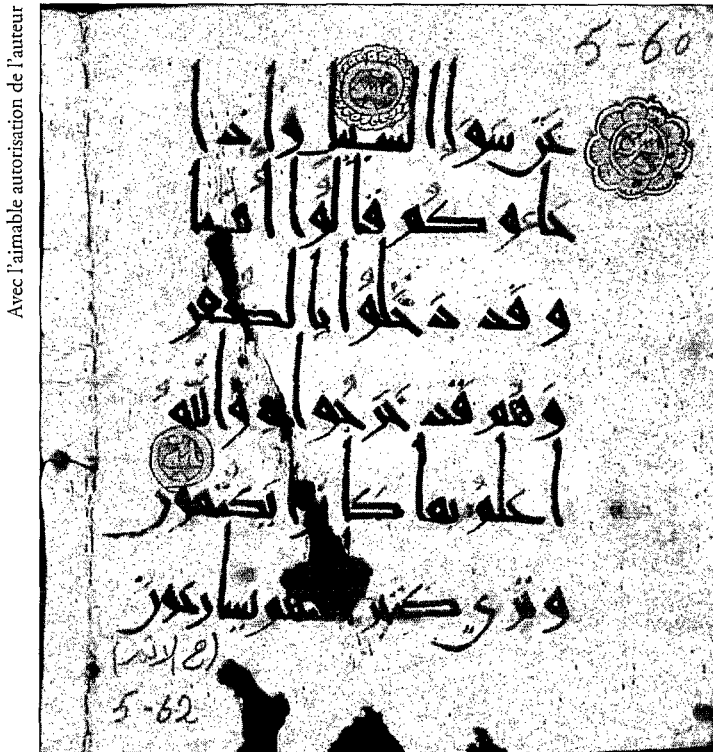 Avec l'aimable autorisation de l'auteur
5-60
عن سوا السبيل واذا
جاوكم قالوا امنا
وقد دخلوا بالكفر
وهم قد خرجوا به والله
اعلم بما كانوا يكتمون
وترى كثيرا منهم يسارعون
5-62